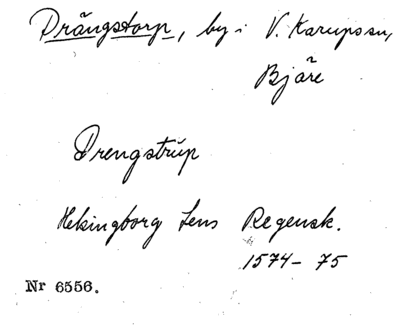 Drängstorp, by i V. Karups sn,
Bjäre
Drengstrup
Helsingborg Lens Regensk.
1574-75
Nr 6556.